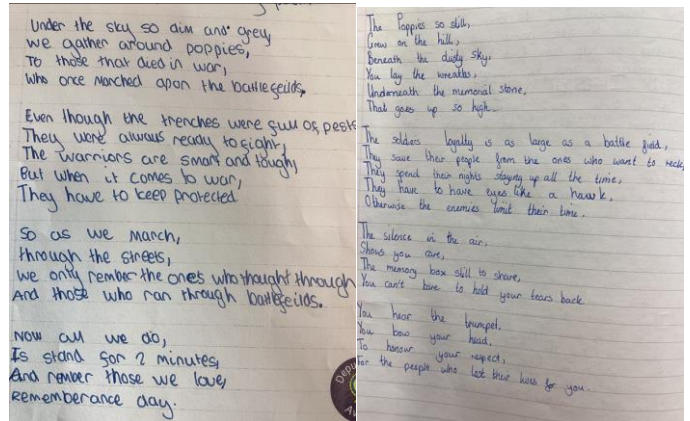 Under the sky so dim and grey,
we gather around poppies,
To those that died in war,
Who once marched apon the battlefeilds.
Even though the trenches were full of pests
They were always ready to fight,
The warriors are smart and tough,
But when it comes to war,
They have to keep protected
So as we march,
through the streets,
we only rember the ones who thought through
And those who ran through battlefeilds.
Now all we do,
Is stand for 2 minutes,
And rember those we love,
Rememberance day.
Depu
The Poppies so still,
Grow on the hill,
Beneath the dusty sky,
You lay the wreaths,
Underneath the memorial stone,
That goes up so high.
The soldiers loyalty is as large as a battle field,
They save their people from the ones who want to
They spend their nights staying up all the time,
They have to have eyes like a hawk,
Otherwise the enemies limit their time.
The silence in the air,
Shows you care,
The memory box still to share,
You can't bare to hold your tears back
You hear the trumpet,
You bow your head,
To honour your respect,
For the people who lost their lives for you.